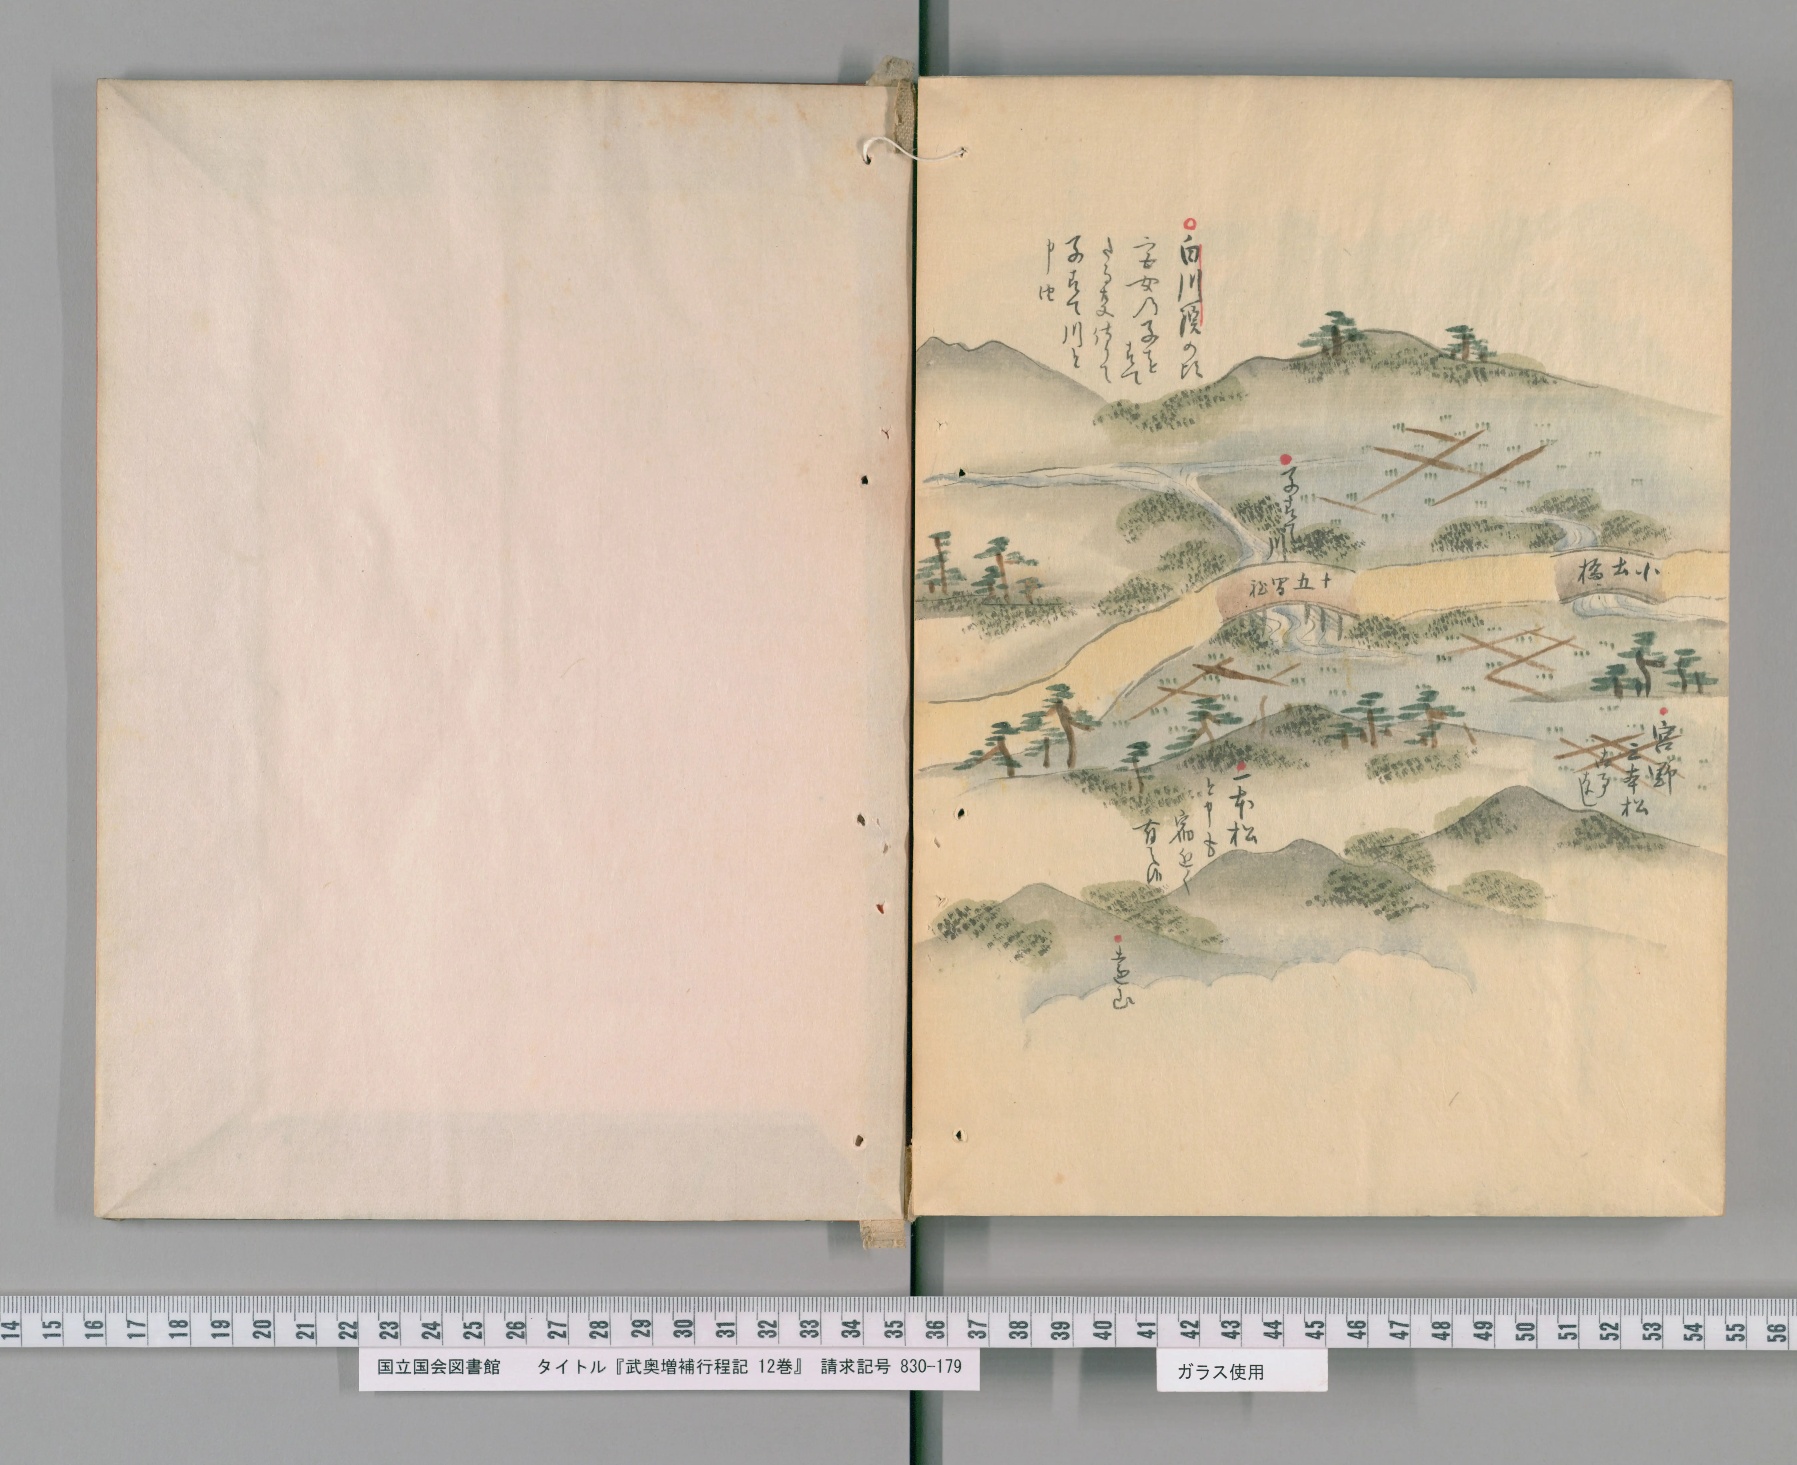 白川院の比
官女の子をすて
たる故侍りて
子すて川と
申也
子すて川
小土橋
宮野
三本松
一本松
と申も
宿近く
有之候
遠山
14 15 16 17 18 19 20 21 22 23 24 25 26 27 28 29 30 31 32 33 34 35 36 37 38 39 40 41 42 43 44 45 46 47 48 49 50 51 52 53 54 55 56
国立国会図書館 タイトル『武奥増補行程記 12巻』 請求記号 830-179
ガラス使用